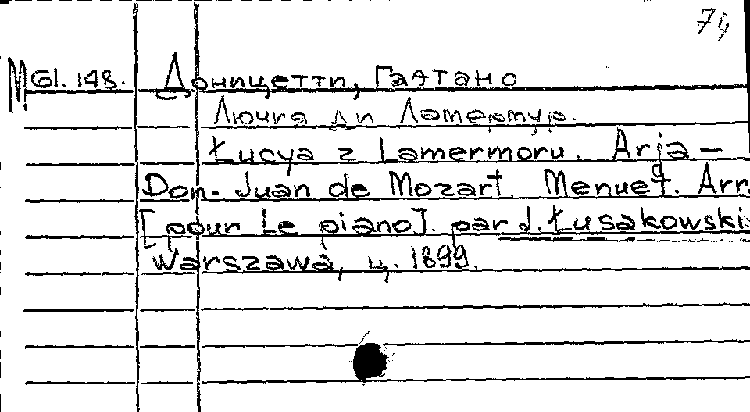 74
M Gl. 148. Доницетти, Гаэтано
Лючия ди Ламермур.
Łucya z Lamermoru. Arja –
Don-Juan de Mozart. Menuet. Arr.
[pour le piano]. par J. Łusakowski
Warszawa, ц. 1899.